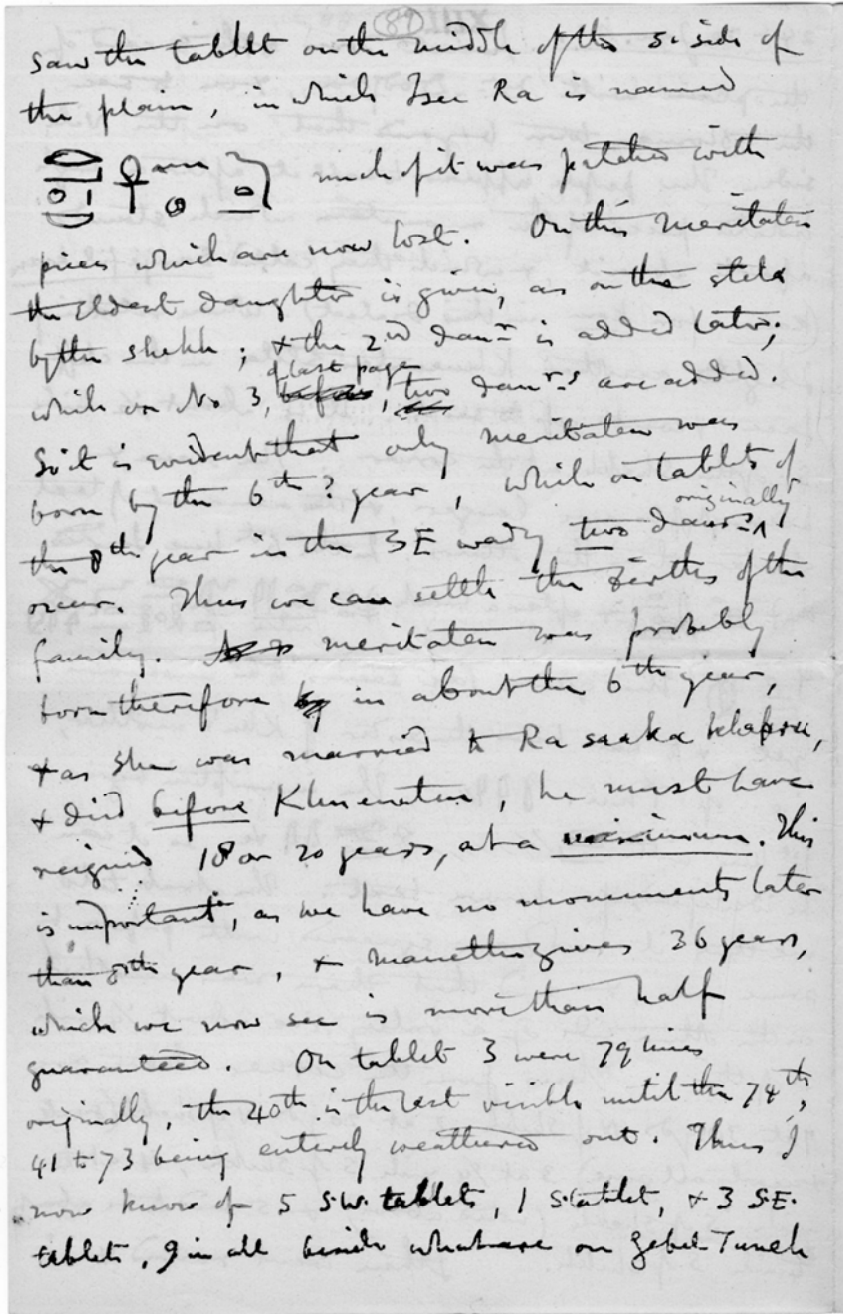 XIII (8)
saw the tablet on the middle of the S. side of
the plain, in which I see Ra is named
much of it was patched with
pieces which are now lost. On this Meritaten
the eldest daughter is given, as on the stela
by the shekh; & the 2nd daur is added later;
of last page
while on No 3, before, two daurs are added.
So it is evident that only Meritaten was
born by the 6th? year, while on tablets of
originally
the 8th year in the SE wady two daurs
occur. Thus we can settle the births of the
family. Meritaten was probably
born therefore by in about the 6th year,
& as she was married to Ra saaka khepru,
& died before Khuenaten, he must have
reigned 18 or 20 years, at a minimum. This
is important, as we have no monuments later
than year, & Manetho gives 36 years,
which we now see is more than half
guaranteed. On tablet 3 were 79 lines
originally, the 40th is the last visible until the 74th,
41 to 73 being entirely weathered out. Thus I
now know of 5 S.W. tablets, 1 S. tablet, & 3 S.E.
tablets, 9 in all beside what are on Gebel Tuneh